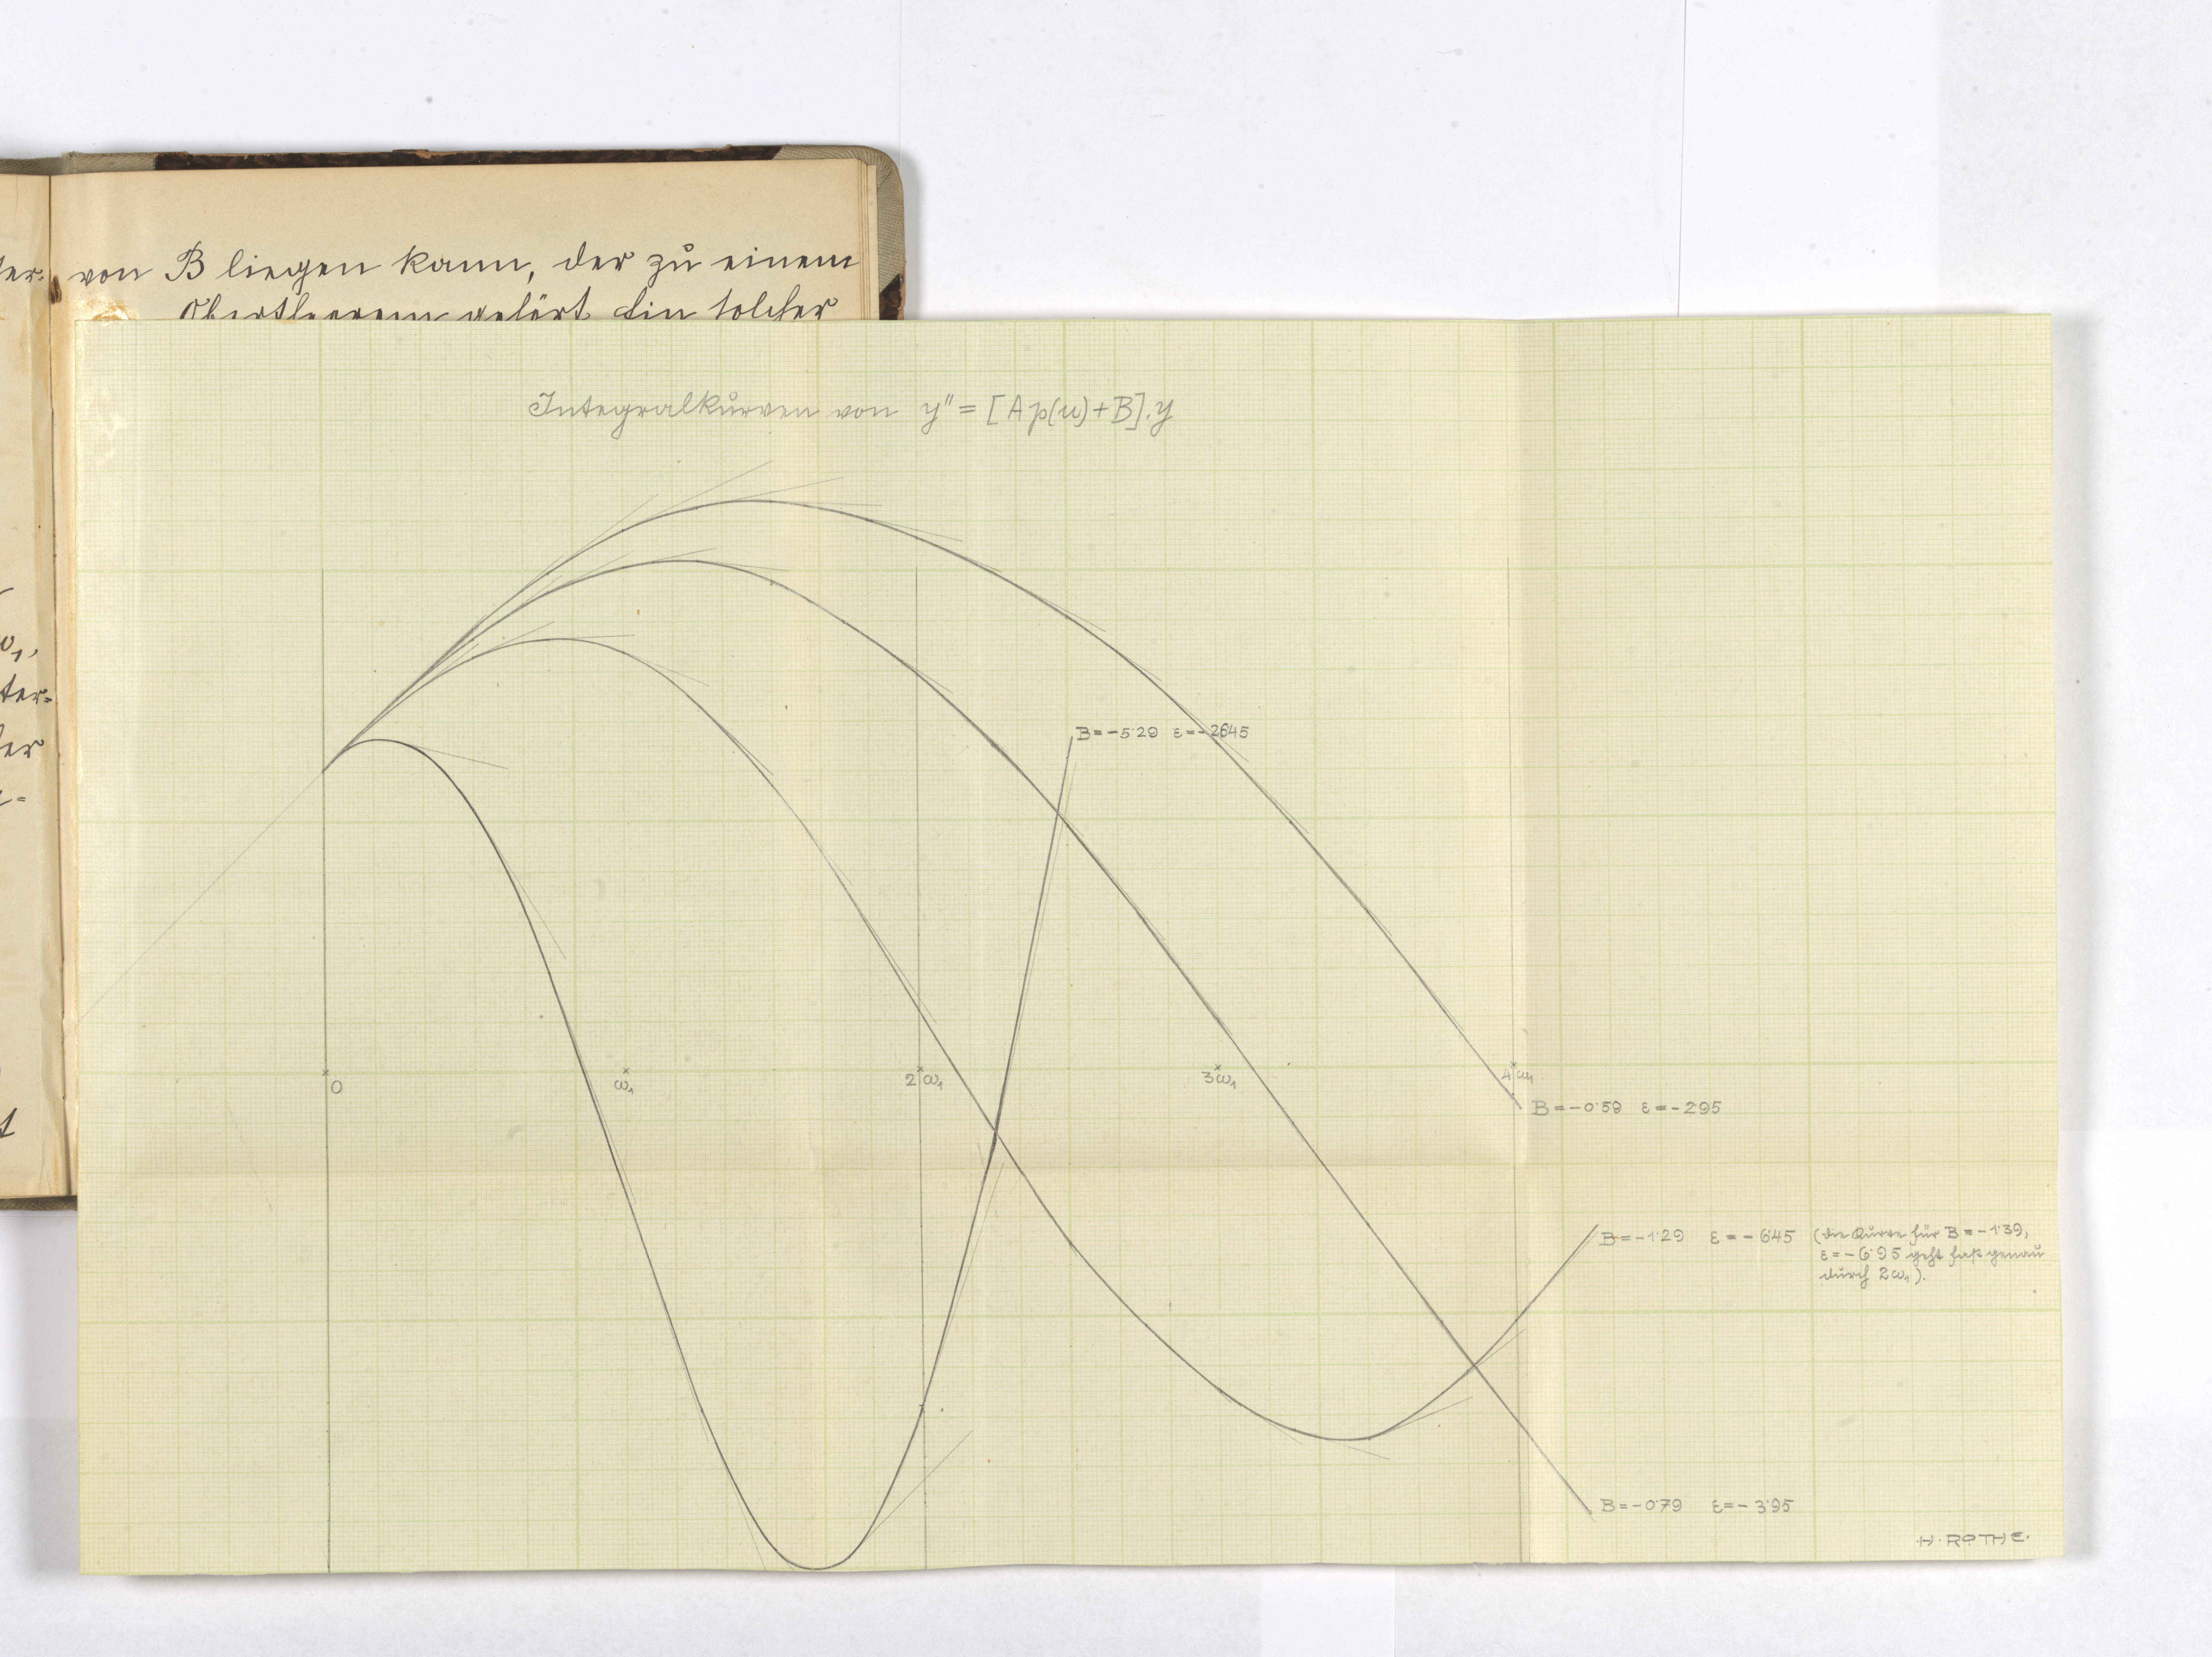 von B liegen kann, der zu einem
Obertheorem gehört. Ein solcher
ter-
ω₁,
ter-
Integralkurven von y″ = [A p(u) + B].y
B = -5·29 ε = -26·45
0
ω₁
2ω₁
3ω₁
4ω₁
B = -0·59 ε = -2·95
B = -1·29 ε = -6·45 (die Kurve für B = -1·39,
ε = -6·95 geht fast genau
durch 2ω₁).
B = -0·79 ε = -3·95
H. ROTHE.